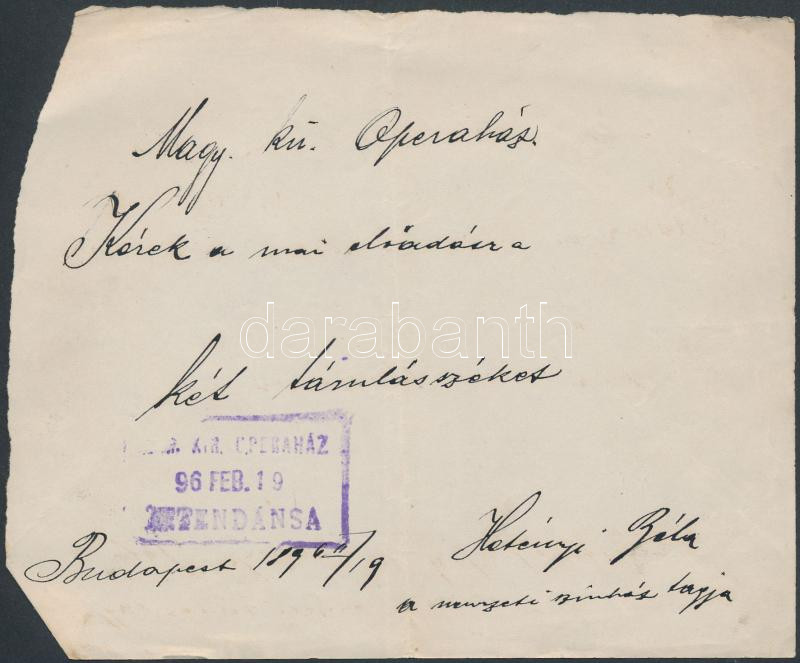 Magy. kir. Operaház.
Kérek a mai előadásra
darabanth
két támlásszéket
KIR. OPERAHÁZ
96 FEB. 19
INTENDÁNSA
Budapest 1896 II/19
Hetényi Béla
a nemzeti szinház tagja